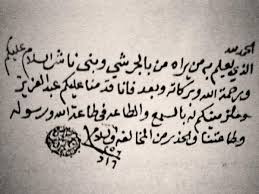 الحمد لله
الذي يعلم به من يراه من بالجرشي وبني ناشر السلام عليكم
ورحمة الله وبركاته وبعد فانا قدمنا عليكم عبدالعزيز
منكم له بالسمع والطاعه في طاعة الله ورسوله
وطاعتنا ونحذر من المخالفه والسلام